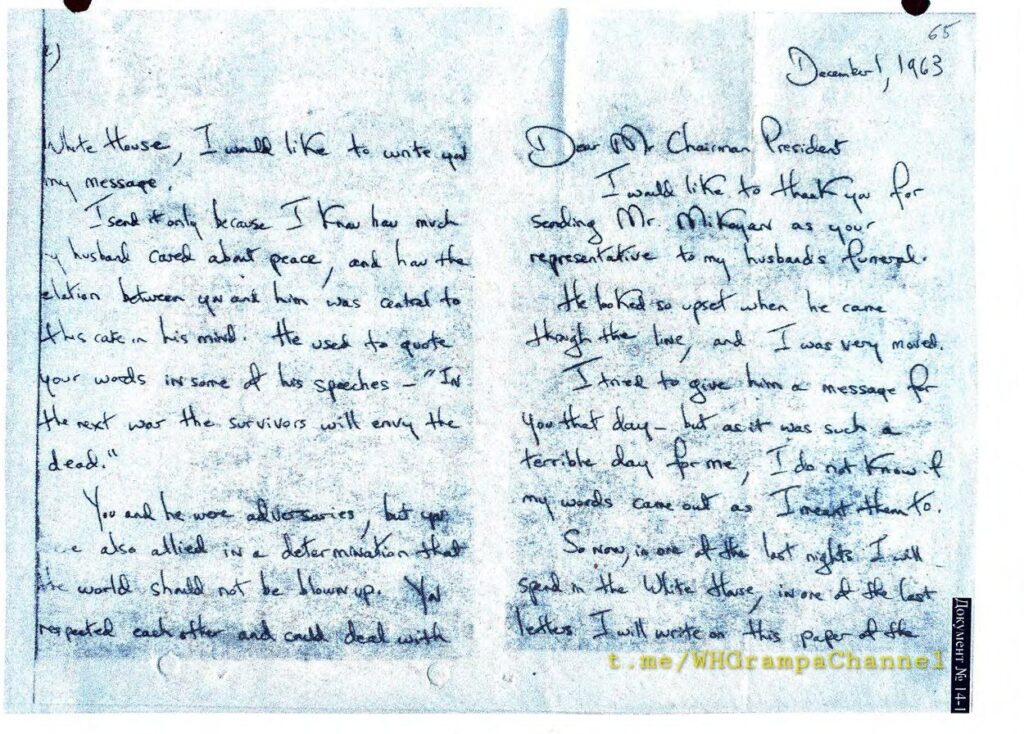 65
December 1, 1963
Dear Mr Chairman President
I would like to thank you for
sending Mr. Mikoyan as your
representative to my husband's funeral.
He looked so upset when he came
through the line, and I was very moved.
I tried to give him a message for
you that day - but as it was such a
terrible day for me, I do not know if
my words came out as I meant them to.
So now, in one of the last nights I will
spend in the White House, in one of the last
letters I will write on this paper of the
2)
White House, I would like to write you
my message.
I send it only because I know how much
y husband cared about peace, and how the
elation between you and him was central to
this care in his mind. He used to quote
your words in some of his speeches - "In
the next war the survivors will envy the
dead."
You and he were adversaries, but you
e also allied in a determination that
the world should not be blown up. You
respected each other and could deal with
Документ № 14-1
t.me/WHGrampaChannel